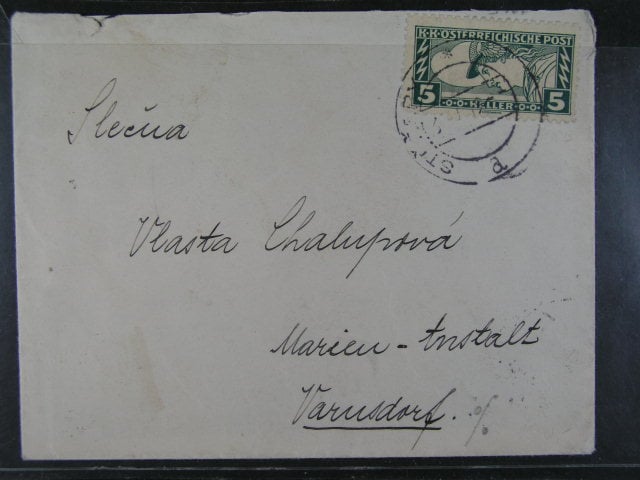 K·K·ÖSTERREICHISCHE POST
5 HELLER 5
Slečna
Vlasta Chalupová
Marien-Anstalt
Varnsdorf.